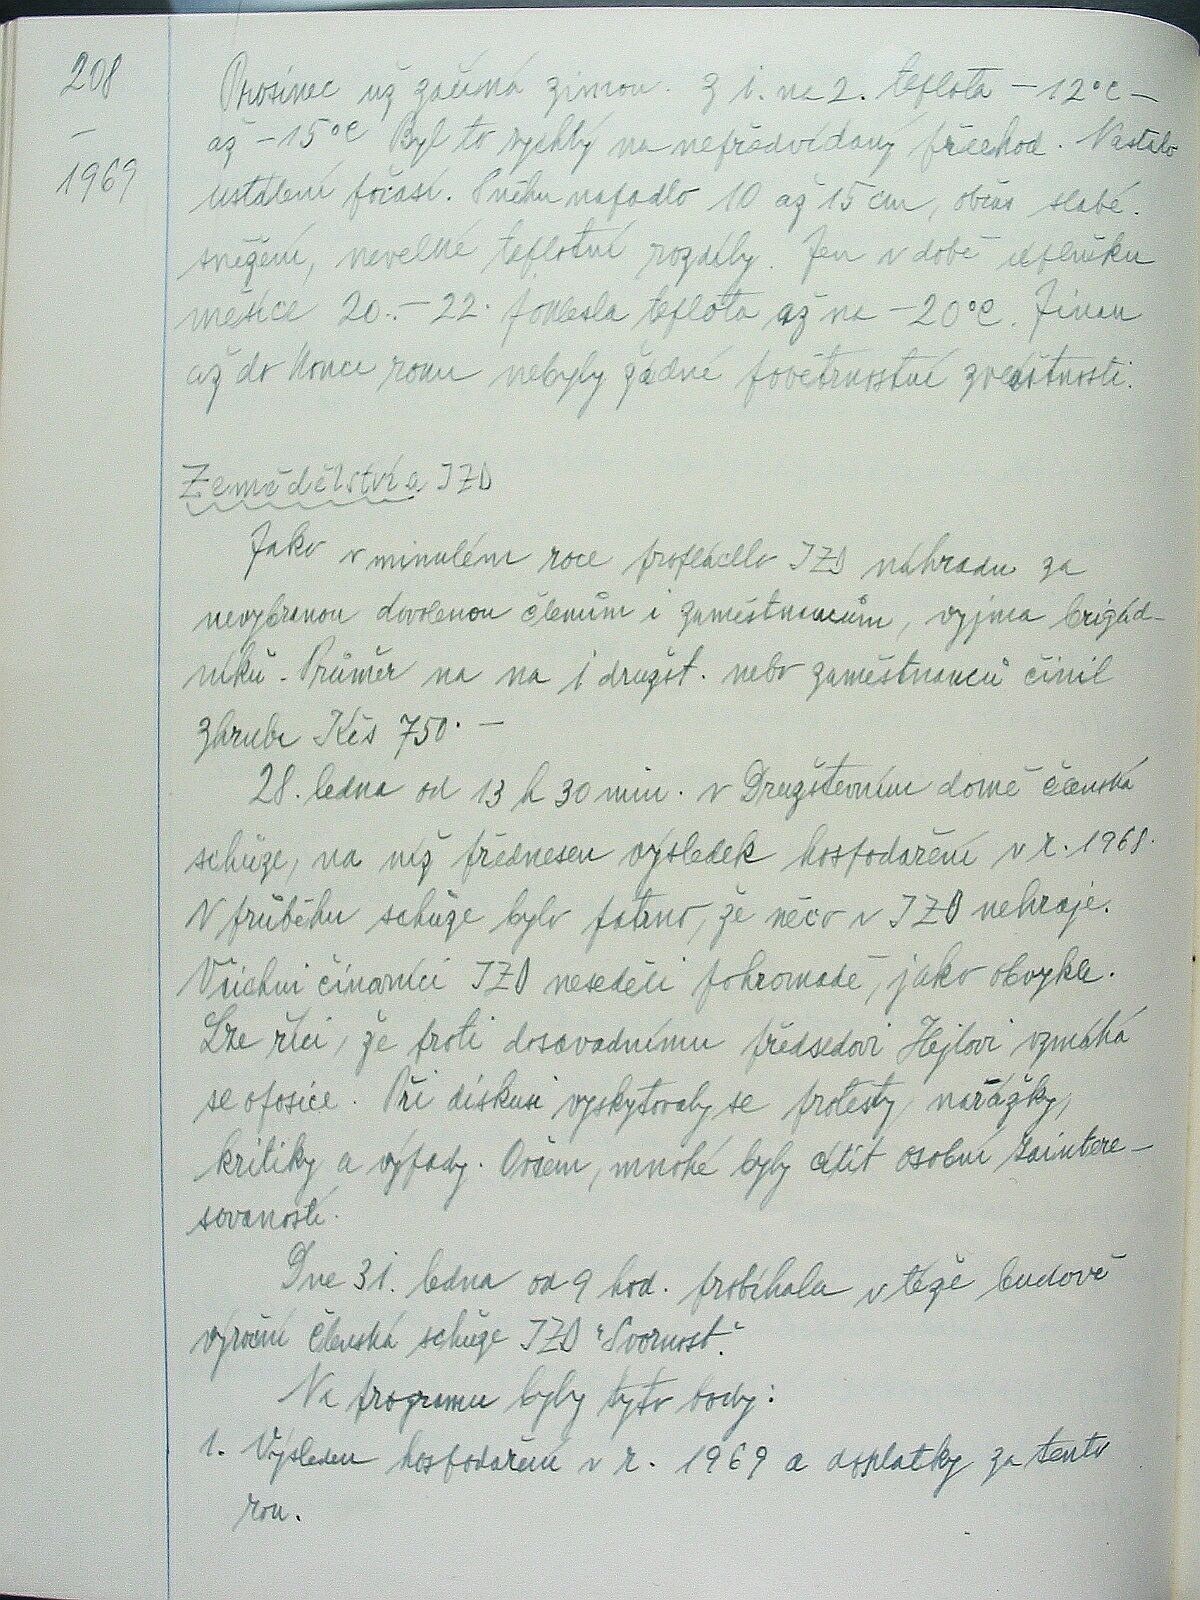 208
–
1969
Prosinec už začíná zimou. Z 1. na 2. teplota – 12°C –
až – 15°C Byl to rychlý na nepředvídaný přechod. Nastalo
ustálení počasí. Sněhu napadlo 10 až 15 cm, občas slabé.
sněžení, nevelké teplotní rozdíly. Jen v době úplňku
měsíce 20. – 22. poklesla teplota až na – 20°C. Jinak
až do konce roku nebyly žádné povětrnostní zvláštnosti.
Zemědělství a JZD
Jako v minulém roce proplácelo JZD náhradu za
nevybranou dovolenou členům i zaměstnancům, vyjma brigád-
níků. Průměr na na 1 družst. nebo zaměstnanců činil
zhruba Kčs 750.–
28. ledna od 13 h 30 min. v Družstevním domě členská
schůze, na níž přednesen výsledek hospodaření v r. 1968.
V průběhu schůze bylo patrno, že něco v JZD nehraje.
Všichni činovníci JZD neseděli pohromadě, jako obvykle.
Lze říci, že proti dosavadnímu předsedovi Hejlovi vzmáhá
se oposice. Při diskusi vyskytovaly se protesty, narážky,
kritiky a výpady. Ovšem, mnohé byly cítit osobní zaintere-
sovaností.
Dne 31. ledna od 9 hod. probíhala v téže budově
výroční členská schůze JZD "Svornost".
Na programu byly tyto body:
1. Výsledek hospodaření v r. 1969 a doplatky za tento
rok.